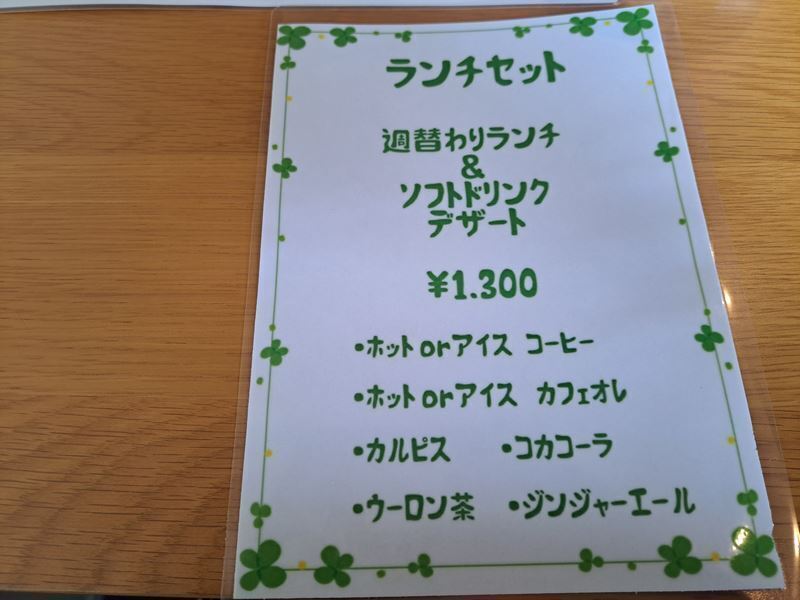 ランチセット
週替わりランチ
&
ソフトドリンク
デザート
¥1.300
•ホットorアイス コーヒー
•ホットorアイス カフェオレ
•カルピス •コカコーラ
•ウーロン茶 •ジンジャーエール